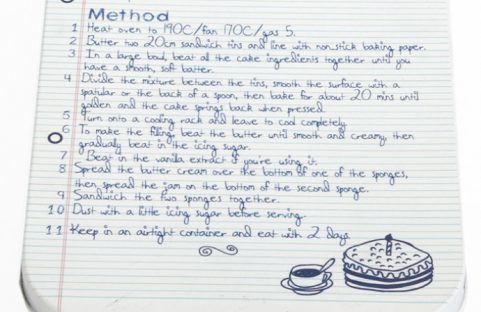 Method
1 Heat oven to 190C/fan 170C/gas 5.
2 Butter two 20cm sandwich tins and line with non-stick baking paper.
3 In a large bowl, beat all the cake ingredients together until you
have a smooth, soft batter.
4 Divide the mixture between the tins, smooth the surface with a
spatular or the back of a spoon, then bake for about 20 mins until
golden and the cake springs back when pressed.
5 Turn onto a cooling rack and leave to cool completely.
6 To make the filling, beat the butter until smooth and creamy, then
gradually beat in the icing sugar.
7 Beat in the vanilla extract if you're using it.
8 Spread the butter cream over the bottom of one of the sponges,
then spread the jam on the bottom of the second sponge.
9 Sandwich the two sponges together.
10 Dust with a little icing sugar before serving.
11 Keep in an airtight container and eat with 2 days